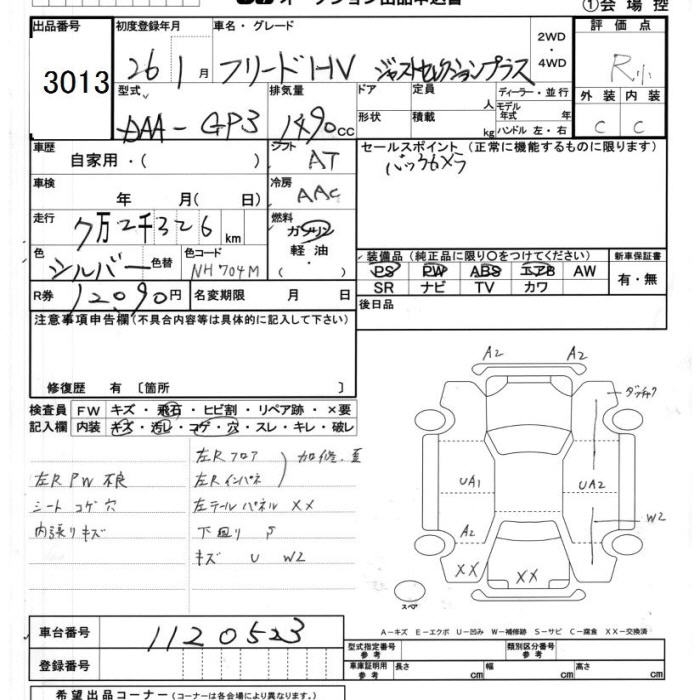 ①会場控
出品番号 初度登録年月 車名・グレード 2WD・4WD 評価点
3013 26 1月 フリードHV ジャストセレクションプラス R小
型式 排気量 ドア 定員 人 ディーラー・並行 外装 内装
DAA-GP3 1490cc 形状 積載 kg モデル年式 年 ハンドル 左・右 C C
車歴 自家用・( ) シフト AT セールスポイント (正常に機能するものに限ります)
バックカメラ
車検 年 月( 日) 冷房 AAC
走行 7万2千326km 燃料 ガソリン 軽油 ・( )
色 シルバー 色替 色コード NH704M
装備品 (純正品に限り○をつけてください) 新車保証書
PS PW ABS エアB AW 有・無
SR ナビ TV カワ
R券 12090円 名変期限 月 日 後日品
注意事項申告欄(不具合内容等は具体的に記入して下さい)
修復歴 有 〔箇所 〕
検査員 FW キズ・飛石・ヒビ割・リペア跡・×要
記入欄 内装 キズ・汚レ・コゲ・穴・スレ・キレ・破レ
左Rフロア
左R PW 不良 左Rインパネ 加修・歪
シート コゲ 穴 左テールパネル XX
内張りキズ 下回り P
キズ U W2
A2 A2
ダッチャク
UA1 UA2
A2 W2
XX XX
スペア
A-キズ E-エクボ U-凹み W-補修跡 S-サビ C-腐食 XX-交換済
車台番号 1120523 型式指定番号 参考 類別区分番号 参考
登録番号 車庫証明用 参考 長さ cm 幅 cm 高さ cm
希望出品コーナー (コーナーは各会場により異なります。)